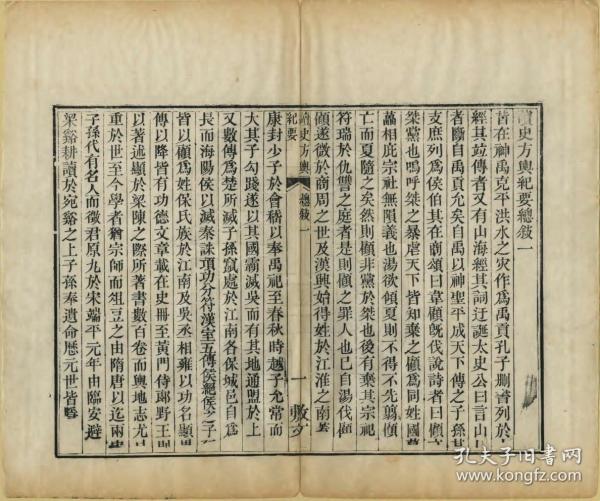 讀史方輿紀要總敘一
昔在神禹克平洪水之灾作為禹貢孔子刪書列於
經其竝傳者又有山海經其詞迂誕太史公曰言山
者斷自禹貢允矣自禹以神聖平成天下傳之子孫其
支庶列為侯伯其在商頌曰韋顧旣伐說詩者曰顧
桀黨也嗚呼桀之暴虐天下皆知棄之顧為同姓國
葢相庇宗社無隕義也湯欲傾夏則不得不先翦顧
亡而夏隨之矣然則顧非黨於桀也後有棄其宗祀
符瑞於仇讐之庭者是則顧之罪人也已自湯伐顧
顧遂微於商周之世及漢興始得姓於江淮之南
讀史方輿紀要
總敘一
一
敷文
康封少子於會稽以奉禹祀至春秋時越子允常而
大其子勾踐遂以其國霸滅吳而有其地通盟於上
又數傳為楚所滅子孫竄處於江南各保城邑自為
長而海陽侯以滅秦誅項功分符漢室五傳侯絕侯之子
皆以顧為姓保氏族於江南及吳丞相雍以功名顯
傳以降皆有功德文章載在史冊至黃門侍郎野王
以著述顯於梁陳之際所著書數百卷而輿地志尤
重於世至今學者猶宗師而俎豆之由隋唐以迄兩宋
子孫代有名人而徵君原九於宋端平元年由臨安避
梁谿耕讀於宛谿之上子孫奉遺命歷元世皆
孔夫子旧书网
www.kongfz.com